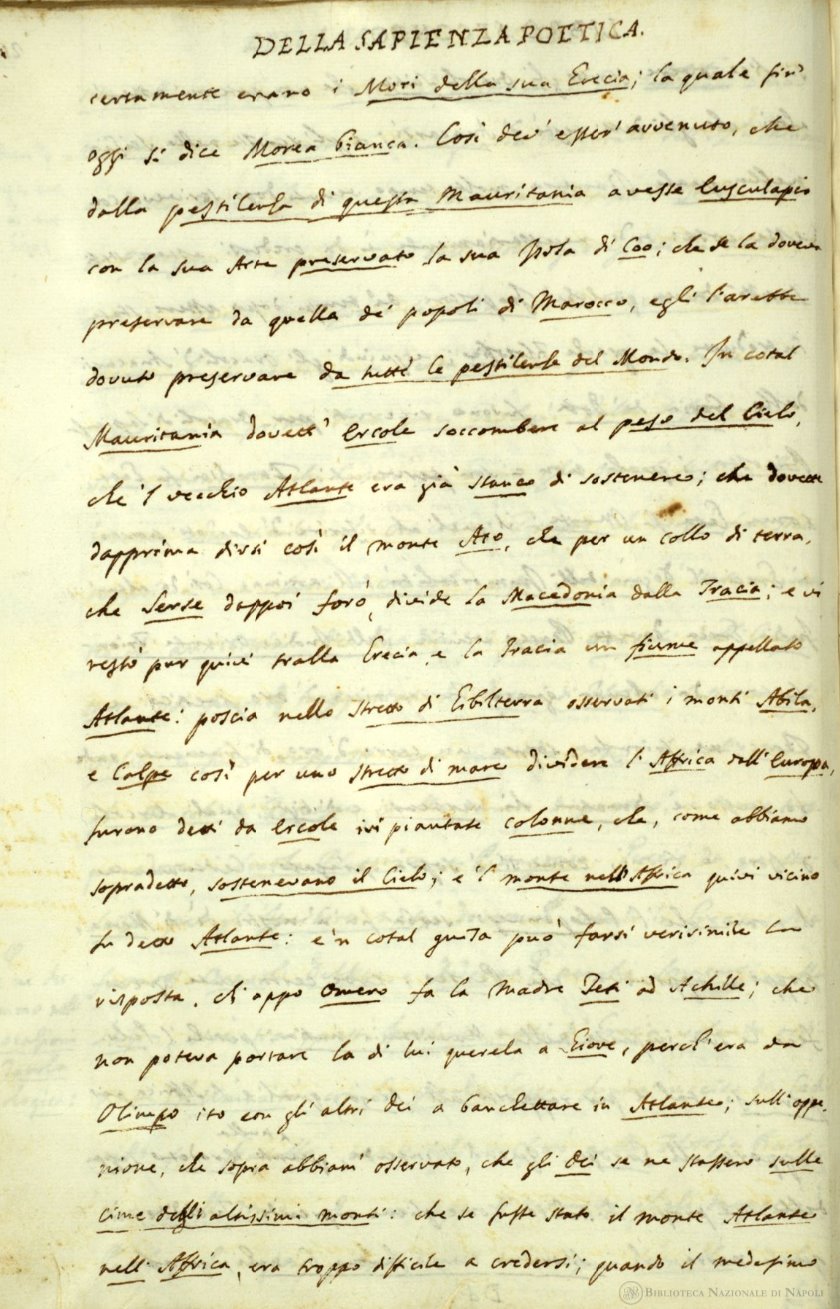 DELLA SAPIENZA POETICA.
certamente erano i Mori della sua Grecia; la quale fin'
oggi si dice Morea bianca. Così dev' esser' avvenuto, che
dalla pestilenza di questa Mauritania avesse Esculapio
con la sua Arte preservato la sua Isola di Coo; che se la doveva
preservare da quella de' popoli di Marocco, egli l'arebbe
dovuto preservare da tutte le pestilenze del Mondo. In cotal
Mauritania dovett' Ercole soccombere al peso del Cielo,
che 'l vecchio Atlante era già stanco di sostenere; che dovette
dapprima dirsi così il monte Ato, che per un collo di terra,
che Serse dappoi forò, divide la Macedonia dalla Tracia; e vi
restò pur quivi tralla Grecia, e la Tracia un fiume appellato
Atlante: poscia nello stretto di Gibilterra osservati i monti Abila,
e Calpe così per uno stretto di mare dividere l'Affrica dall'Europa,
furono dette da Ercole ivi piantate colonne, che, come abbiamo
sopradetto, sostenevano il Cielo; e 'l monte nell'Affrica quivi vicino
fu detto Atlante: e 'n cotal guisa può farsi verisimile la
risposta, ch'appo Omero fa la madre Teti ad Achille; che
non poteva portare la di lui querela a Giove, perch'era da
Olimpo ito con gli altri dei a banchettare in Atlante; sull'oppe-
nione, che sopra abbiam' osservato, che gli Dei se ne stassero sulle
cime degli altissimi monti: che se fusse stato il monte Atlante
nell'Affrica, era troppo difficile a credersi; quando il medesimo
BIBLIOTECA NAZIONALE DI NAPOLI